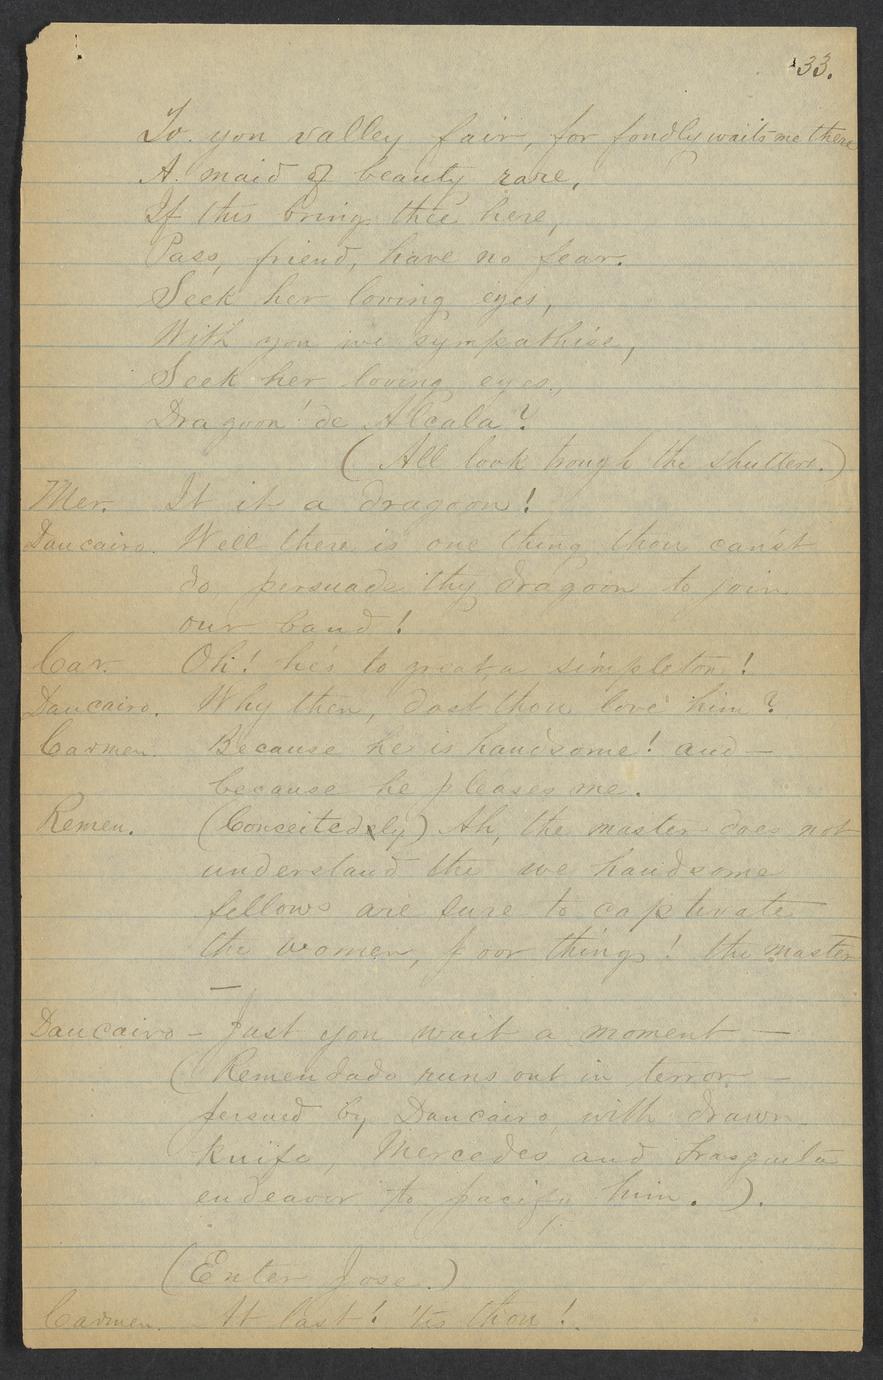 33.
To yon valley fair, for fondly waits me there
A maid of beauty rare,
If this bring thee here,
Pass, friend, have no fear.
Seek her loving eyes,
With you we sympathise,
Seek her loving eyes,
Dragoon de Alcala?
(All look trough the shutters.)
Mer. It it a dragoon!
Dancairo. Well there is one thing thou can'st
do, persuade thy dragoon to join
our band!
Car. Oh! he's to great a simpleton!
Dancairo. Why then, dost thou love him?
Carmen. Because he is handsome! and —
because he pleases me.
Remen. (Conceitedly) Ah, the master does not
understand the we handsome
fellows are sure to captivate
the women, poor things! the master
—
Dancairo — Just you wait a moment —
(Remendado runs out in terror —
persued by Dancairo, with drawn
knife, Mercedes and Frasquita
endeavor to pacify him.).
(Enter Jose.)
Carmen. At last! 'tis thou!